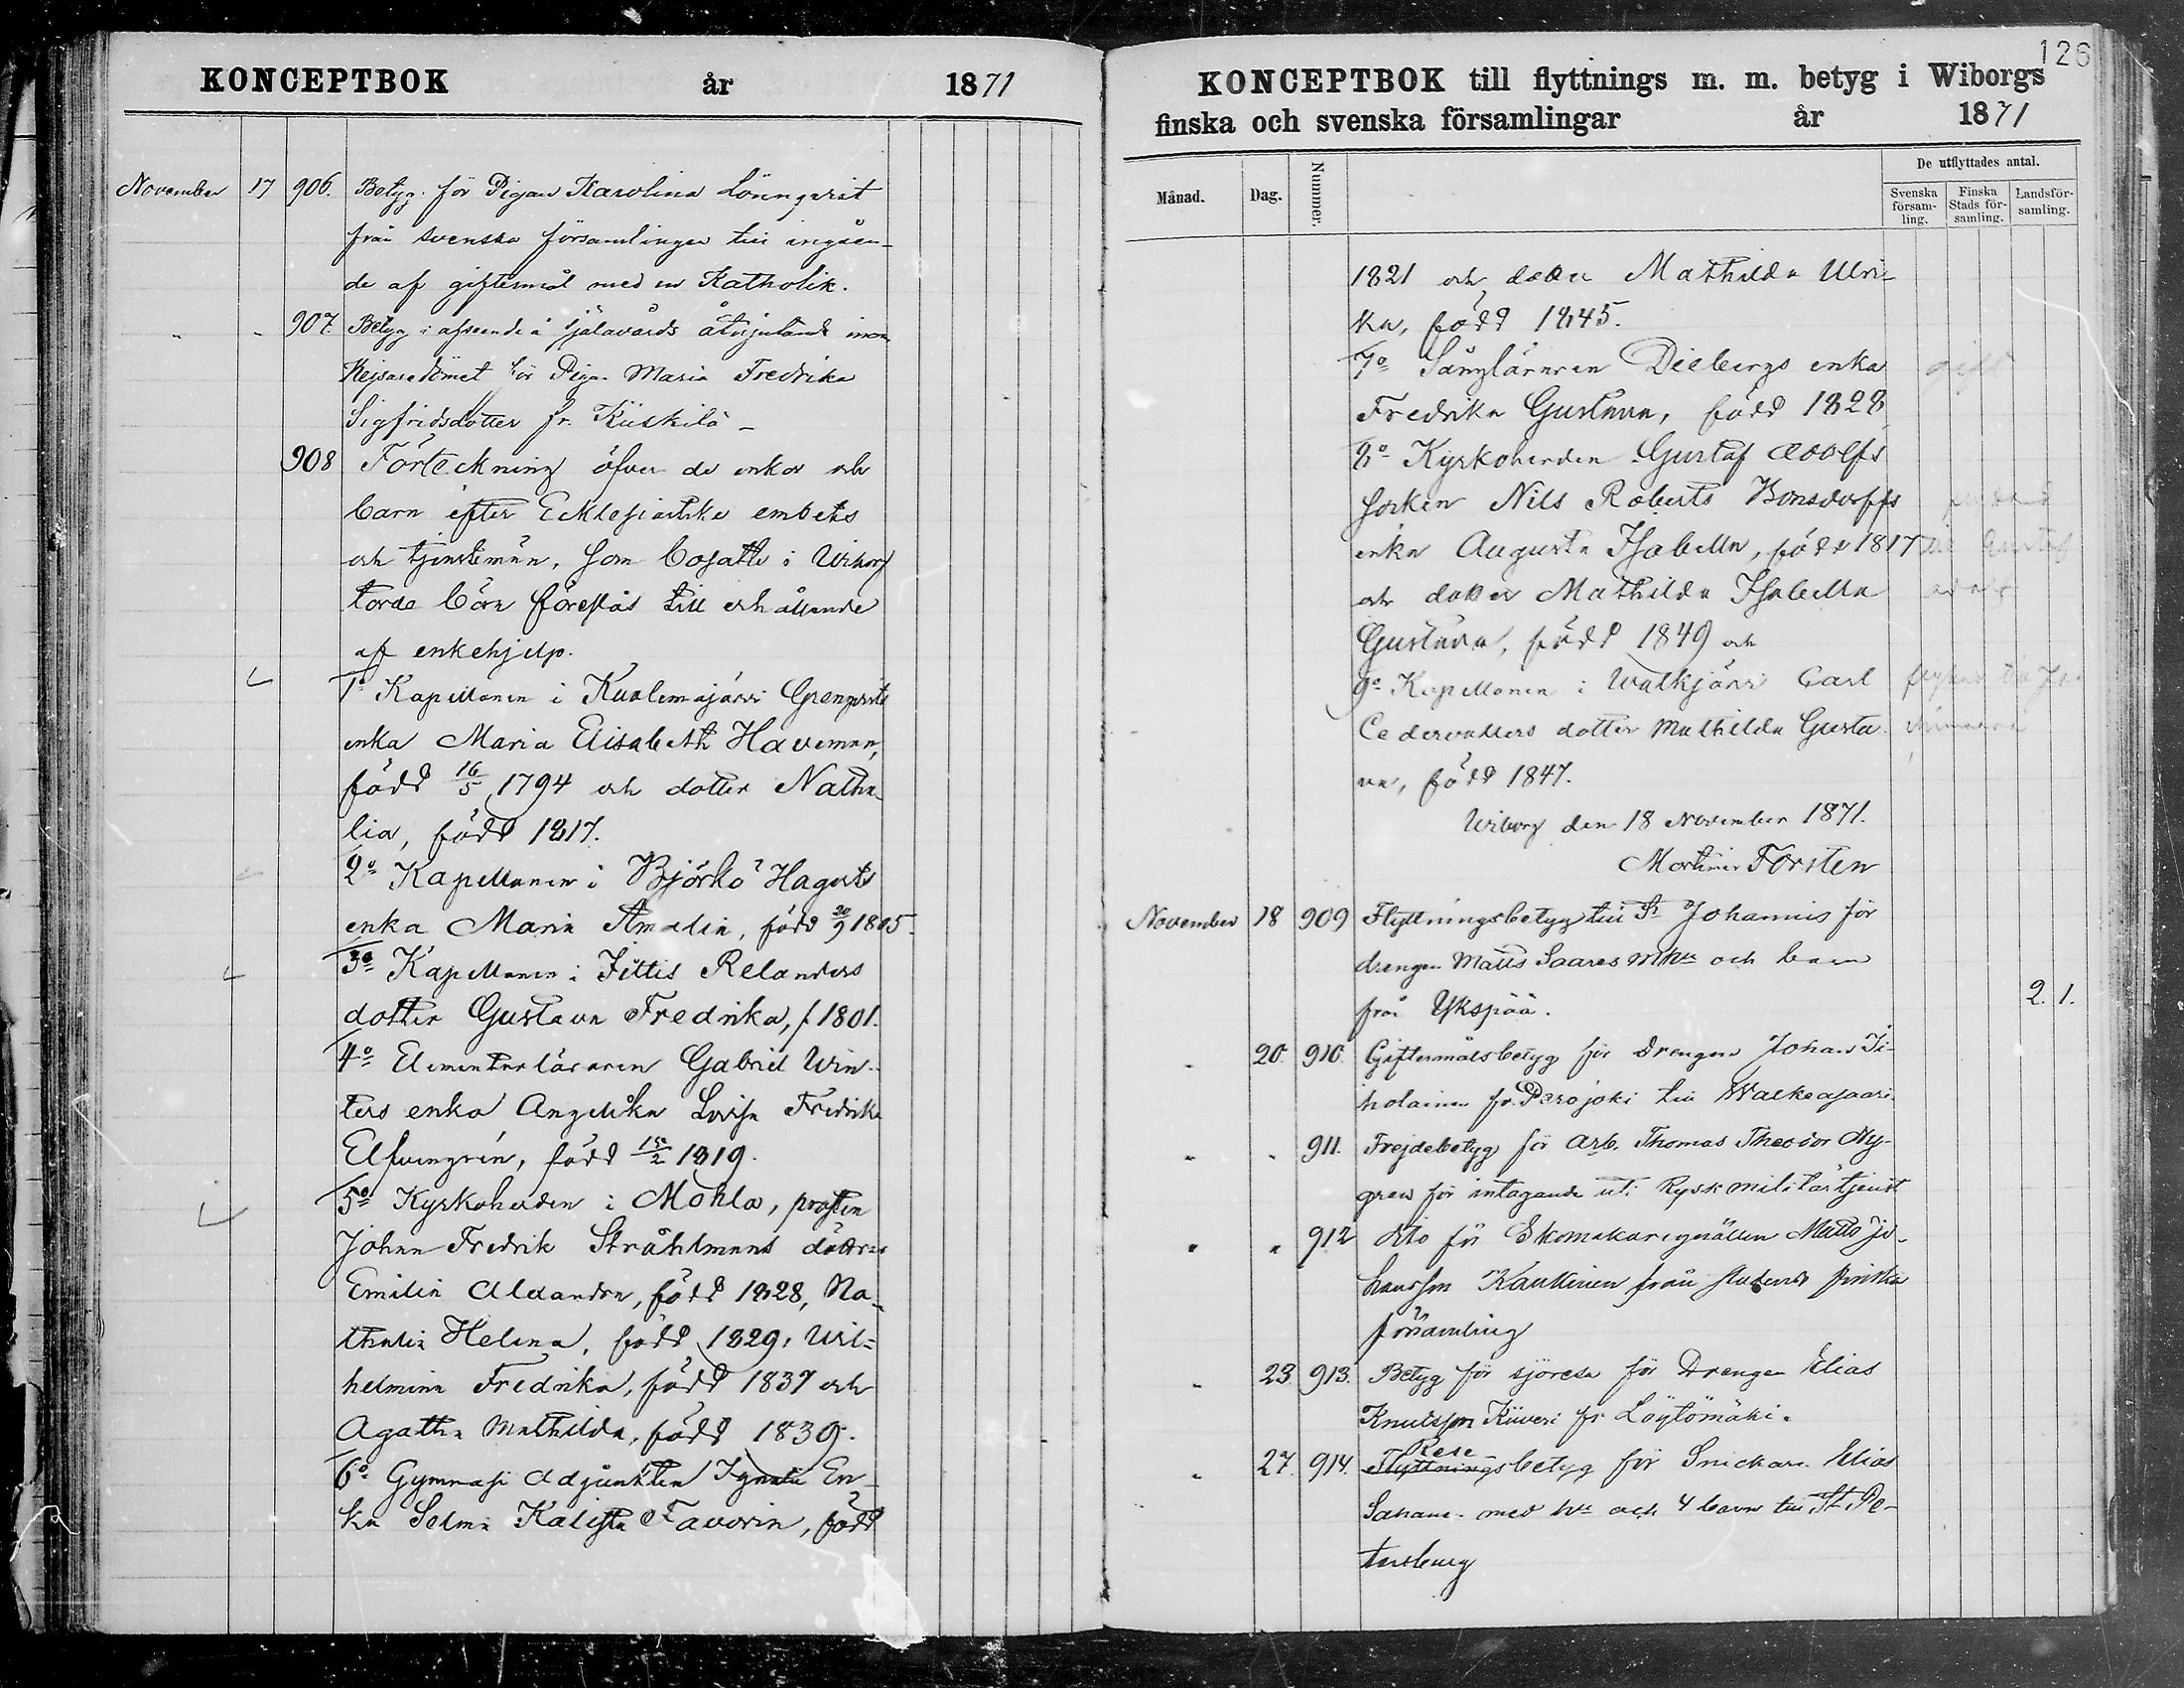 KONCEPTBOK år 1871
November 17 906. Betyg för Pigan Karolina Lönnqvist
från svenska församlingen till ingåen-
de af giftermål med en Katholik.
" " 907. Betyg i afseende å själavårds åtnjutande inom
Kejsaredömet för Pigan Maria Fredrika
Sigfridsdotter fr. Kiiskilä -
908 Förteckning öfver de enkor och
barn efter Ecklesiastike embets
och tjenstemän, som bosatte i Wiborg
torde böra föreslås till erhållande
af enkehjelp.
1o Kapellanen i Kuolemajärvi Grenqvists
enka Maria Elisabeth Haveman,
född 16/5 1794 och dotter Natha-
lia, född 1817.
2o Kapellanen i Björkö Hagerts
enka Maria Amalia, född 20/9 1805.
3o Kapellanen i Jittis Relanders
dotter Gustava Fredrika, f. 1801.
4o Elementarläraren Gabriel Win-
ters enka Angelika Lovisa Fredrika
Elfvengren, född 15/2 1819.
5o Kyrkoherden i Mohla, prosten
Johan Fredrik Stråhlmans döttrar
Emilia Alexandra, född 1828, Na-
thalia Helena, född 1829, Wil-
helmina Fredrika, född 1837 och
Agatha Mathilda, född 1839.
6o Gymnasi Adjunkten Ignatii En-
ka Selma Kalista Favorin, född
126
KONCEPTBOK till flyttnings m. m. betyg i Wiborgs
finska och svenska församlingar år 1871
Månad. Dag. Nummer. De utflyttades antal.
Svenska församling. Finska Stads församling. Landsförsamling.
1821 och dotter Mathilda Ulri-
ka, född 1845.
7o Sångläraren Diebergs enka gift
Fredrika Gustava, född 1828
8o Kyrkoherden Gustaf Adolfs
sorken Nils Roberts Bonsdorffs
enka Augusta Isabella, född 1817 till Gustaf
och dotter Mathilda Isabella adolf
Gustava, född 1849 och
9o Kapellanen i Walkjärvi Carl
Cedervallers dotter Mathilda Gusta-
va, född 1847.
Wiborg den 18 November 1871.
Mortimer Forsten
November 18 909 Flyttningsbetyg till St Johannis för
drengen Matts Saares m hu och barn
från Ykspää. 2. 1.
" 20. 910. Giftermålsbetyg för Drengen Johan Ti-
holainen fr. Perojoki till Walkeasaari.
" " 911. Frejdebetyg för Arb. Thomas Theodor Ny-
gren för intagande uti Rysk militärtjenst
" " 912 dito för Skomakaregesällen Matts Jo-
hansson Kaukinen från stadens finska
församling
" 23. 913. Betyg för sjöresa för Drengen Elias
Knutsson Kiiveri fr Löytömäki.
Rese
" 27. 914. Flyttningsbetyg för Snickare Elias
med hu och 4 barn till St. Pe-
tersburg